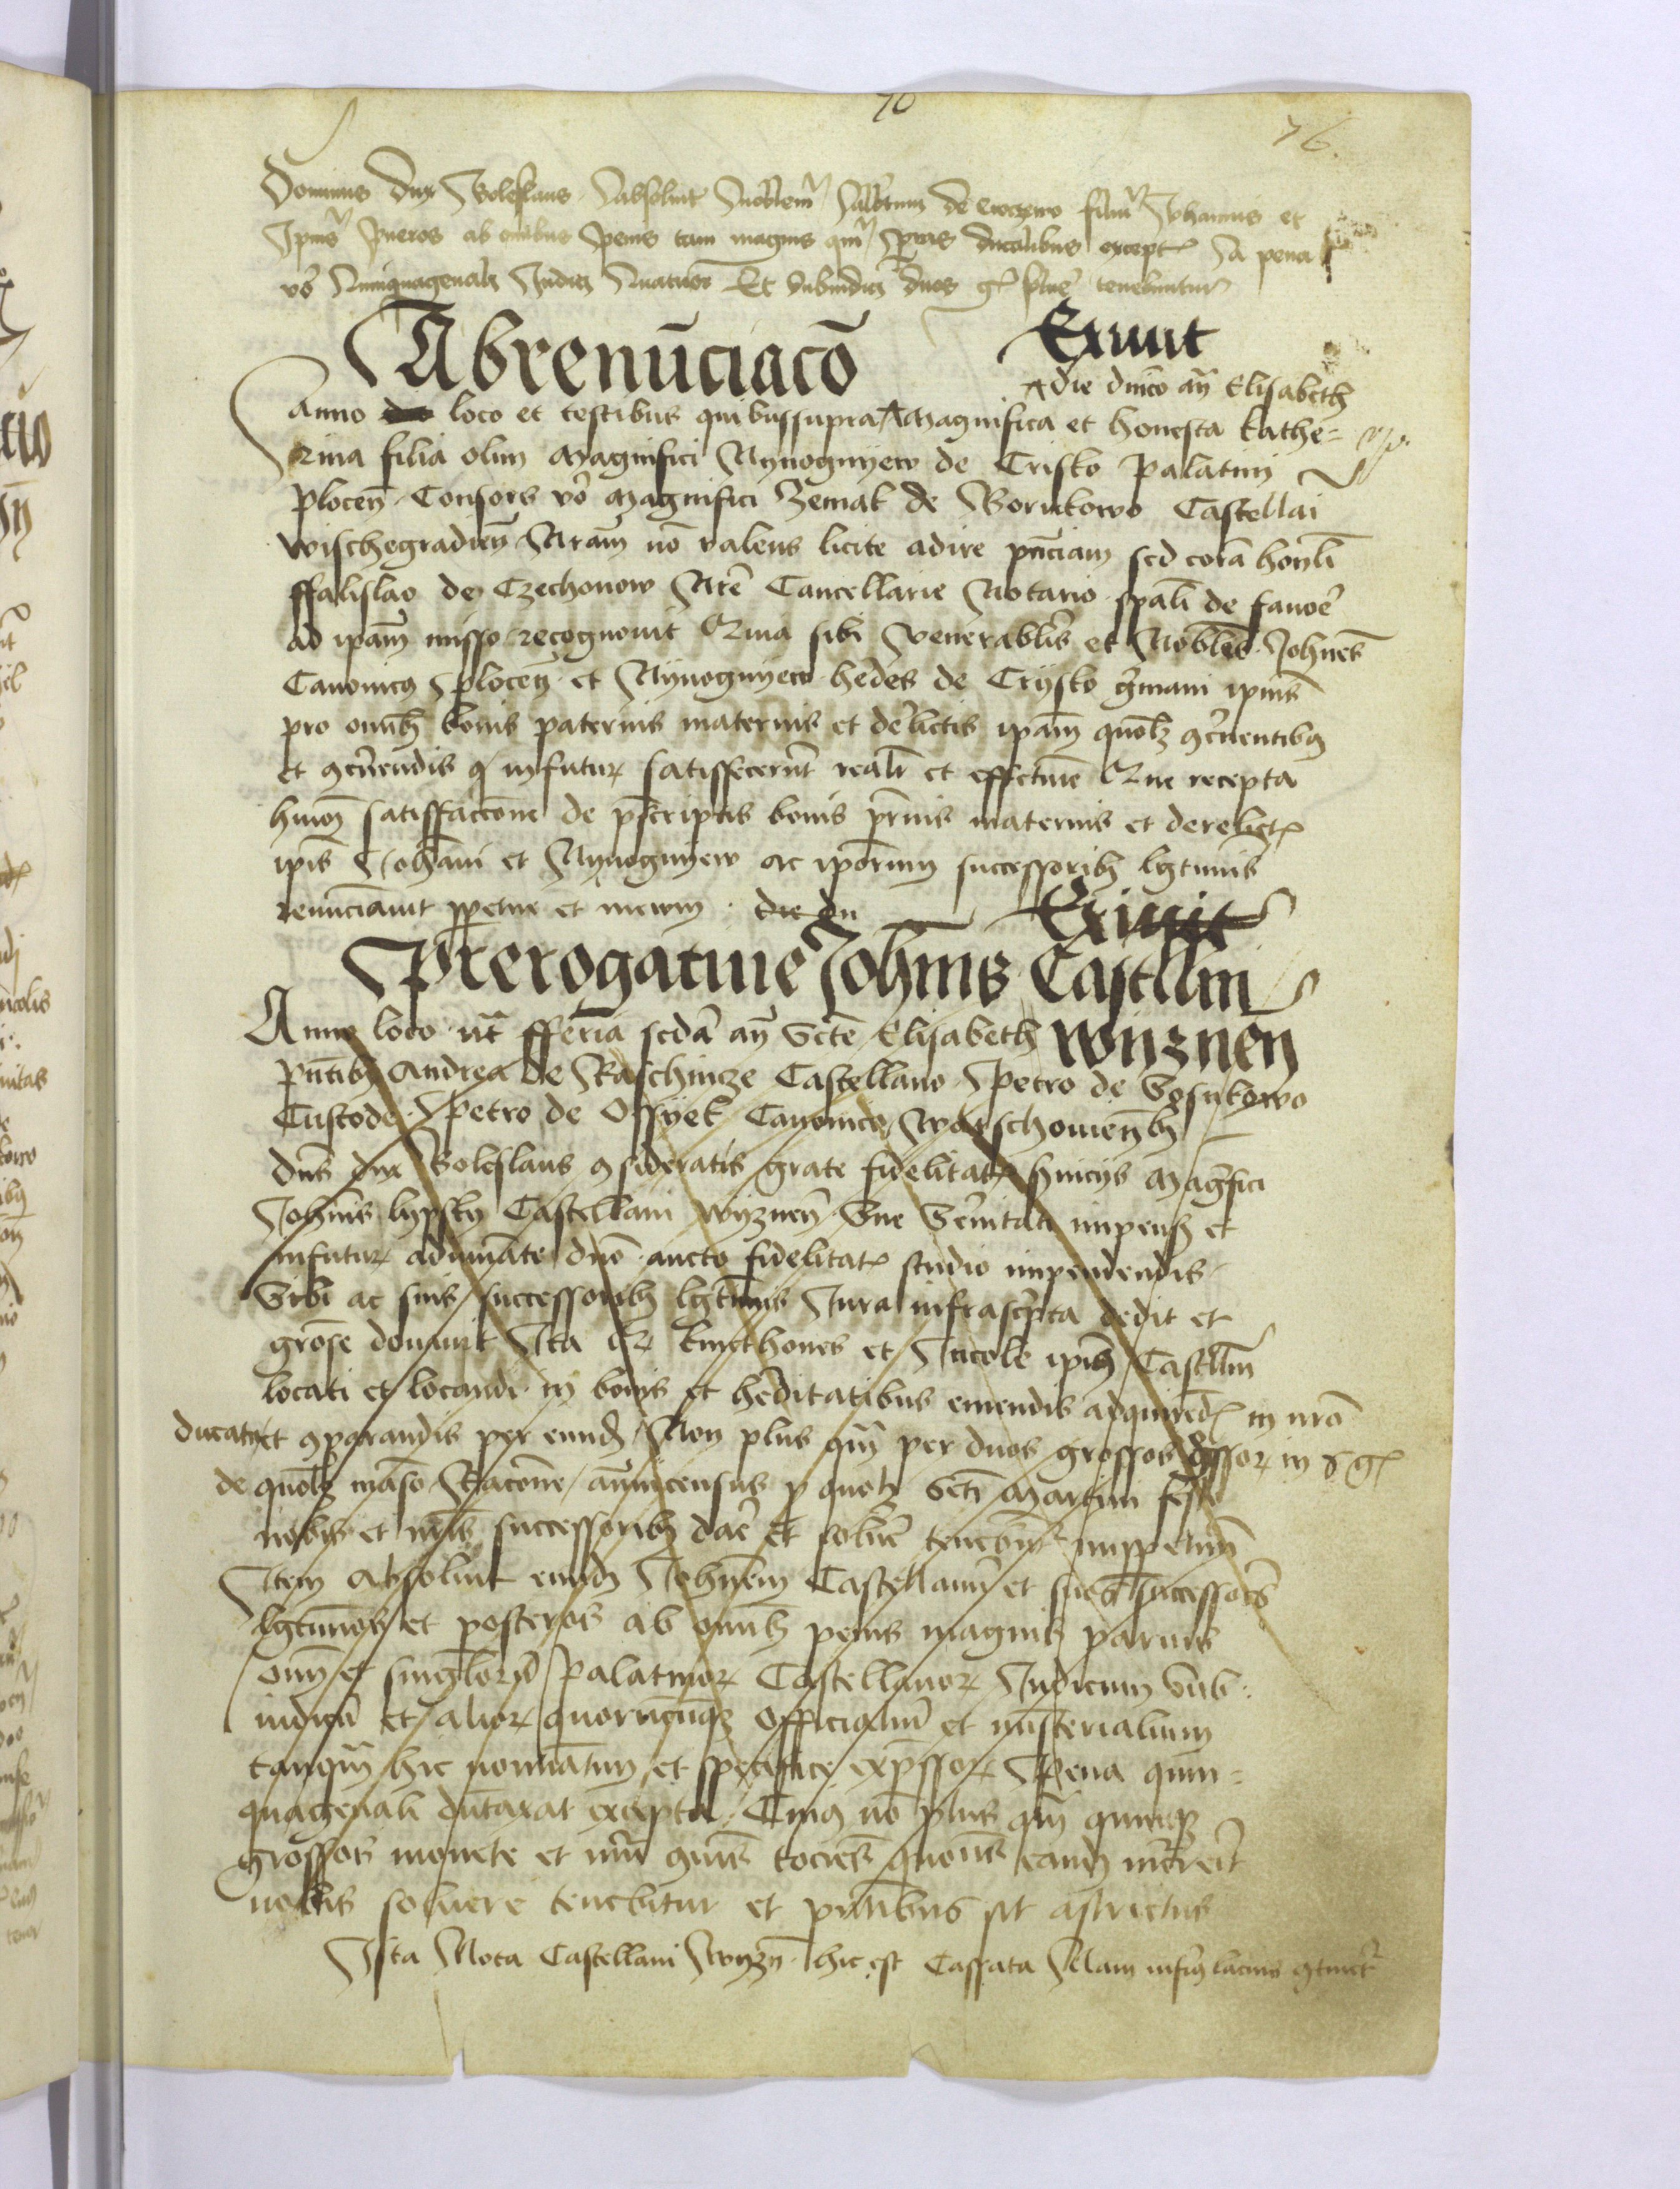 70
76.
Dominus Dux Boleslaus absoluit Nobilem Albertum de filium Johannis et
Ipius pueros ab omibus penis tam magnis qm pvis ducalibus except A pena
vo quinquagenali Judici Quatuor Et Subiudici duos g solue tenebuntur
Abrenunciaco
Exiuit
die dnico an Elisabeth
Anno loco et testibus quibussupra Magnifica et honesta Kathe=
rina filia olim Magnifici Nynogniew de Cristo palatini
plocen Consors vo Magnifici Zemak de Borukowo Castellai
Wischegradien Nram no valens licite adire pnciam sed cora honli
ffalislao de Czechonow Nre Cancellarie Notario spali de fauoe
ad ipam misso recognouit Quia sibi Venerablis et Nobles Johnes
Canonicus plocen et Nynogniew hedes de Crysko gmani ipius
pro omib bonis paternis maternis et delictis ipam quolz cnentibus
et cnendis in futur satisfecerut reali et effectuie Que recepta
hmoi satisfaccone de pscriptis bonis prnis maternis et derelict
ipis Johani et Nynogniew ac iporum successorib lgtimis
renunciauit ppetue et in ewm die dn
Exiuit
Prerogatiue Johnis Castllni
Wyznen
Anno loco ut fferia scda an Scte Elisabeth
pntib Andrea de Raschincze Castellano Petro de Gosutowo
Custode Petro de Ossyek Canonico Warschouienb
dns dux Boleslaus consideratis grate fidelitat Suicijs Magfici
Johnis lypsky Castellani Wyznen Sue Sernitati impens et
infutur aduniate dno aucto fidelitat studio impendendis
Sibi ac suis successorib lgtimis Jura infrascpta dedit et
grose donauit Ita qr kmethones et Incole ipius Castllni
locati et locandi in bonis et heditatibus emendis adquired in nro
ducatu et cparandis per eund Non plus qm per duos grossos gssor in g
de quolz maso Racone annicensus p quolz Scti Martini festo
nobis et nris successorib dae et solue tenebunt imppetuu
Item Absoluit eund Johnem Castellanu et suos successores
lgtimos et posteros ab omib penis magnis paruis
omi et singlorum Palatinor Castellanor Judicum Sub=
iudicu et alior quorucuqz Officialiu et misterialium
tanqm hic nominatim et specifice expssor Pena quin=
quagenali dutaxat excepta Cuius no plus qm quinqz
grossos monete et nri guis tocies quocies eand increrit
nobis soluere tenebitur et pntibus sit astrictus
Ista Nota Castellani Wyzn hic est Cassata Nam infius lacius ctinet